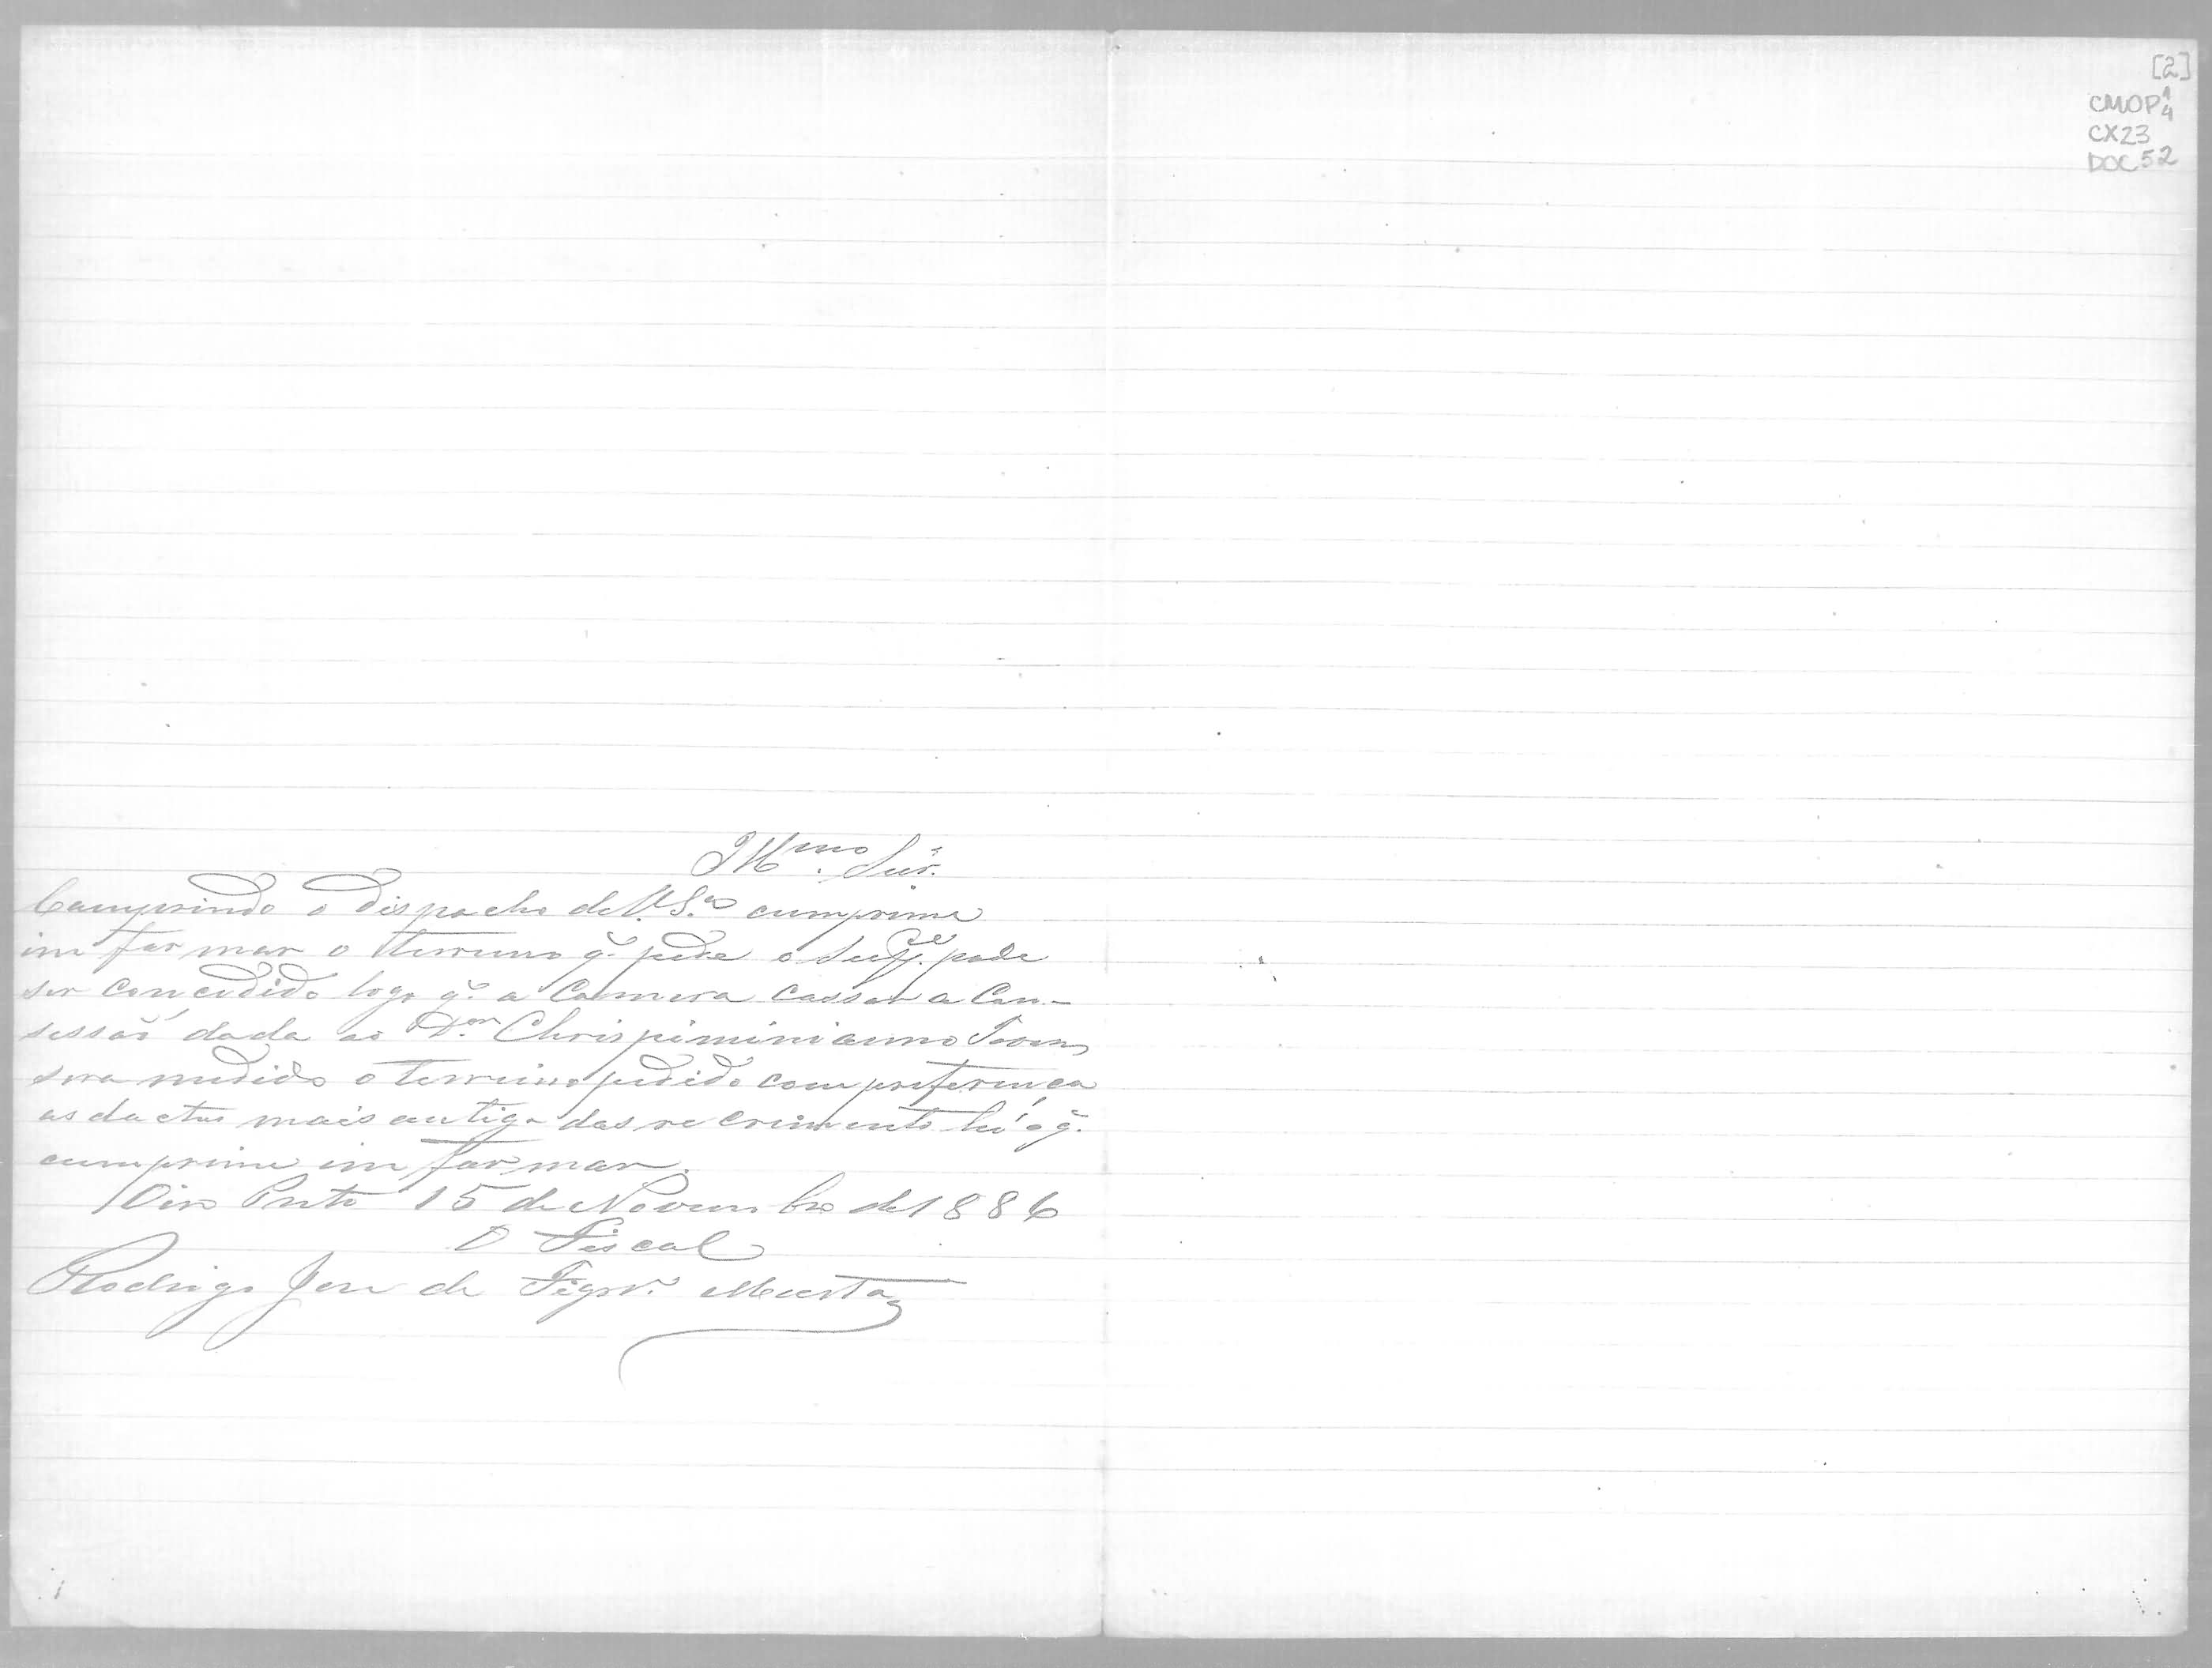 [2]
CMOP 1/4
CX23
DOC 52
Illmo. Snr.
Comprindo o dispacho de V. S.as cumprime
im for mar o terreno q. pede o Supe. pode
ser concedido logo q. a Camera cassar a Con-
sessão dada ao Dor. Chrispiminianno Tavares
sera medido o terreino pedido com preferença
as dactas mais antiga das re crimento hé o q.
cumprime im for mar.
Oiro Preto 15 de Novembro de 1886
O Fiscal
Rodrigo José de Figdo. Murta